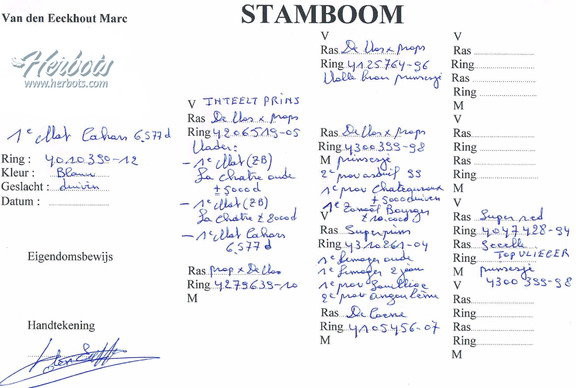 Van den Eeckhout Marc
STAMBOOM
Herbots
www.herbots.com
1e Nat Cahors 6.577d
Ring : 4010390-12
Kleur : Blauw
Geslacht : duivin
Datum :
Eigendomsbewijs
Handtekening
V INTEELT PRINS
Ras De Vos x props
Ring 4206519-05
Vader:
- 1e Nat (ZB)
La Chatre oude
± 5000d
- 1e Nat (ZB)
La Chatre ± 8000d
- 1e Nat Cahors
6.577d
Ras prop x De Vos
Ring 4279639-10
M
V
Ras De Vos x props
Ring 4125764-96
Volle broer prinsesje
Ras De Vos x props
Ring 4300399-98
M prinsesje
2e prov Argenton 99
1e prov Chateauroux
± 5000 duiven
1e Zoneel Bourges
V ± 10.000d
Ras Superprins
Ring 4310261-04
1e Limoges oude
1e Limoges 2 jaar
1e prov Souillac
2e prov Angoulème
Ras De Coene
Ring 4105456-07
M
V
Ras
Ring
Ras
Ring
M
V
Ras
Ring
Ras
Ring
M
V
Ras Super red
Ring 4047428-94
Ras Seselle
Ring TOPVLIEGER
M prinsesje
V 4300399-98
Ras
Ring
Ras
Ring
M